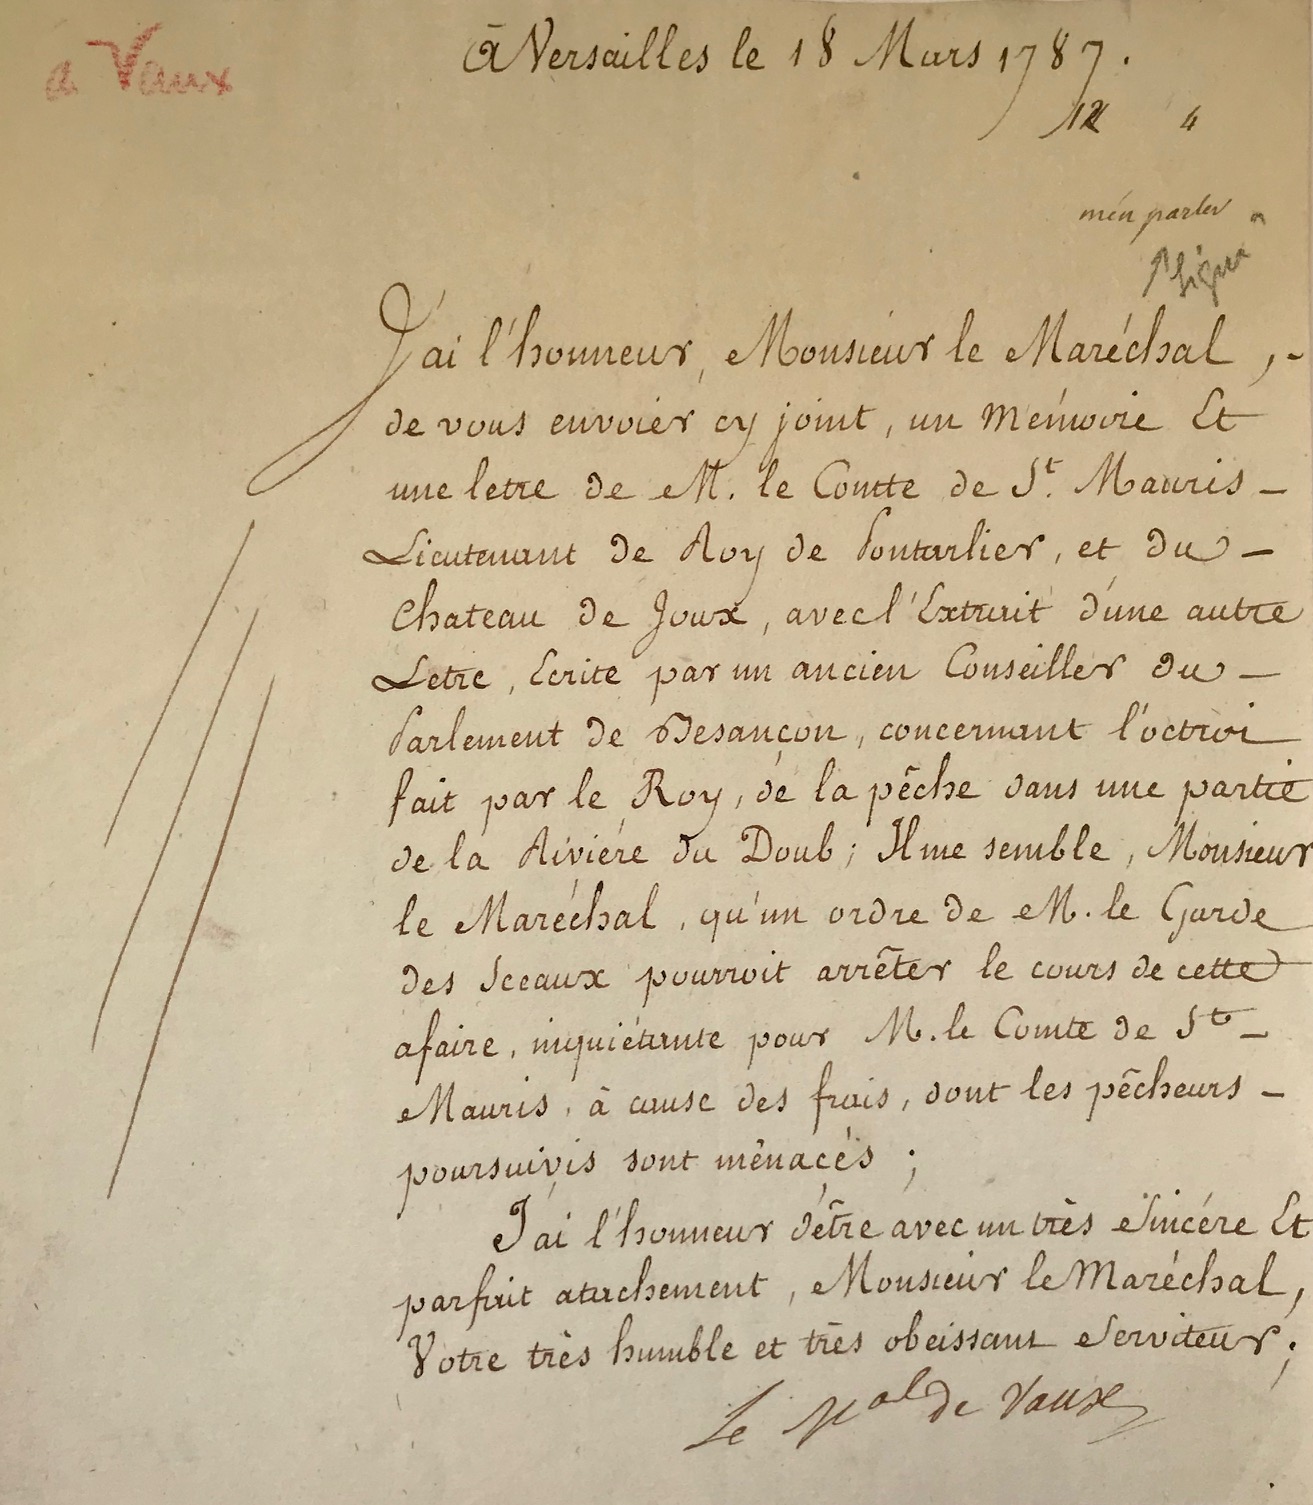 a Vaux
à Versailles le 18 Mars 1787.
12 4
m'en parler
J'ai l'honneur, Monsieur le Maréchal,
de vous envoier cy joint, un Mémoire Et
une letre de M. le Comte de St. Mauris
Lieutenant de Roy de Pontarlier, et du
Chateau de Joux, avec l'Extrait d'une autre
Letre, Ecrite par un ancien Conseiller du
Parlement de Besançon, concernant l'octroi
fait par le Roy, de la pêche dans une partie
de la Riviére du Doub; Il me semble, Monsieur
le Maréchal, qu'un ordre de M. le Garde
des Sceaux pourroit arrêter le cours de cette
afaire, inquiétante pour M. le Comte de St
Mauris, à cause des frais, dont les pêcheurs
poursuivis sont ménacés;
J'ai l'honneur d'être avec un très Sincére Et
parfait atachement, Monsieur le Maréchal,
Votre très humble et très obeissant Serviteur;
Le Mal de Vaux